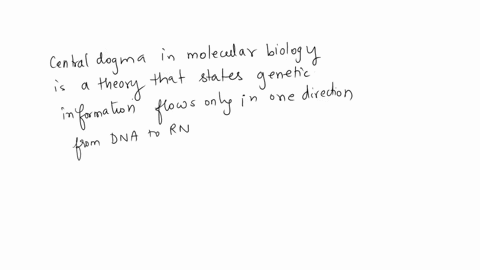 Central dogma in molecular biology
is a theory that states genetic
information flows only in one direction
from DNA to RN